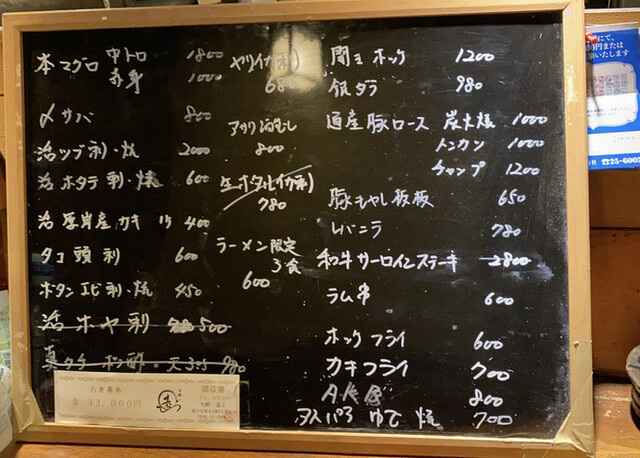 本マグロ 中トロ 1800
赤身 1000
〆サバ 800
活ツブ刺・焼 2000
活ホタテ刺・焼 600
活厚岸産カキ 1ケ 400
タコ頭刺 600
ボタンエビ刺・焼 450
活ホヤ刺 500
真タチ ポン酢・天ぷら 980
ヤリイカ刺
680
アサリ酒むし
800
生ホタルイカ刺
780
ラーメン限定
3食
600
開きホッケ 1200
銀ダラ 980
道産豚ロース 炭火焼 1000
トンカツ 1000
チャップ 1200
豚もやし板板 650
レバニラ 780
和牛サーロインステーキ 2800
ラム串 600
ホッケフライ 600
カキフライ 700
AKB 800
アスパラ ゆで 焼 700
お食事券
金 33,000円
領収書
にて、
0円または
いたします
☎25-600